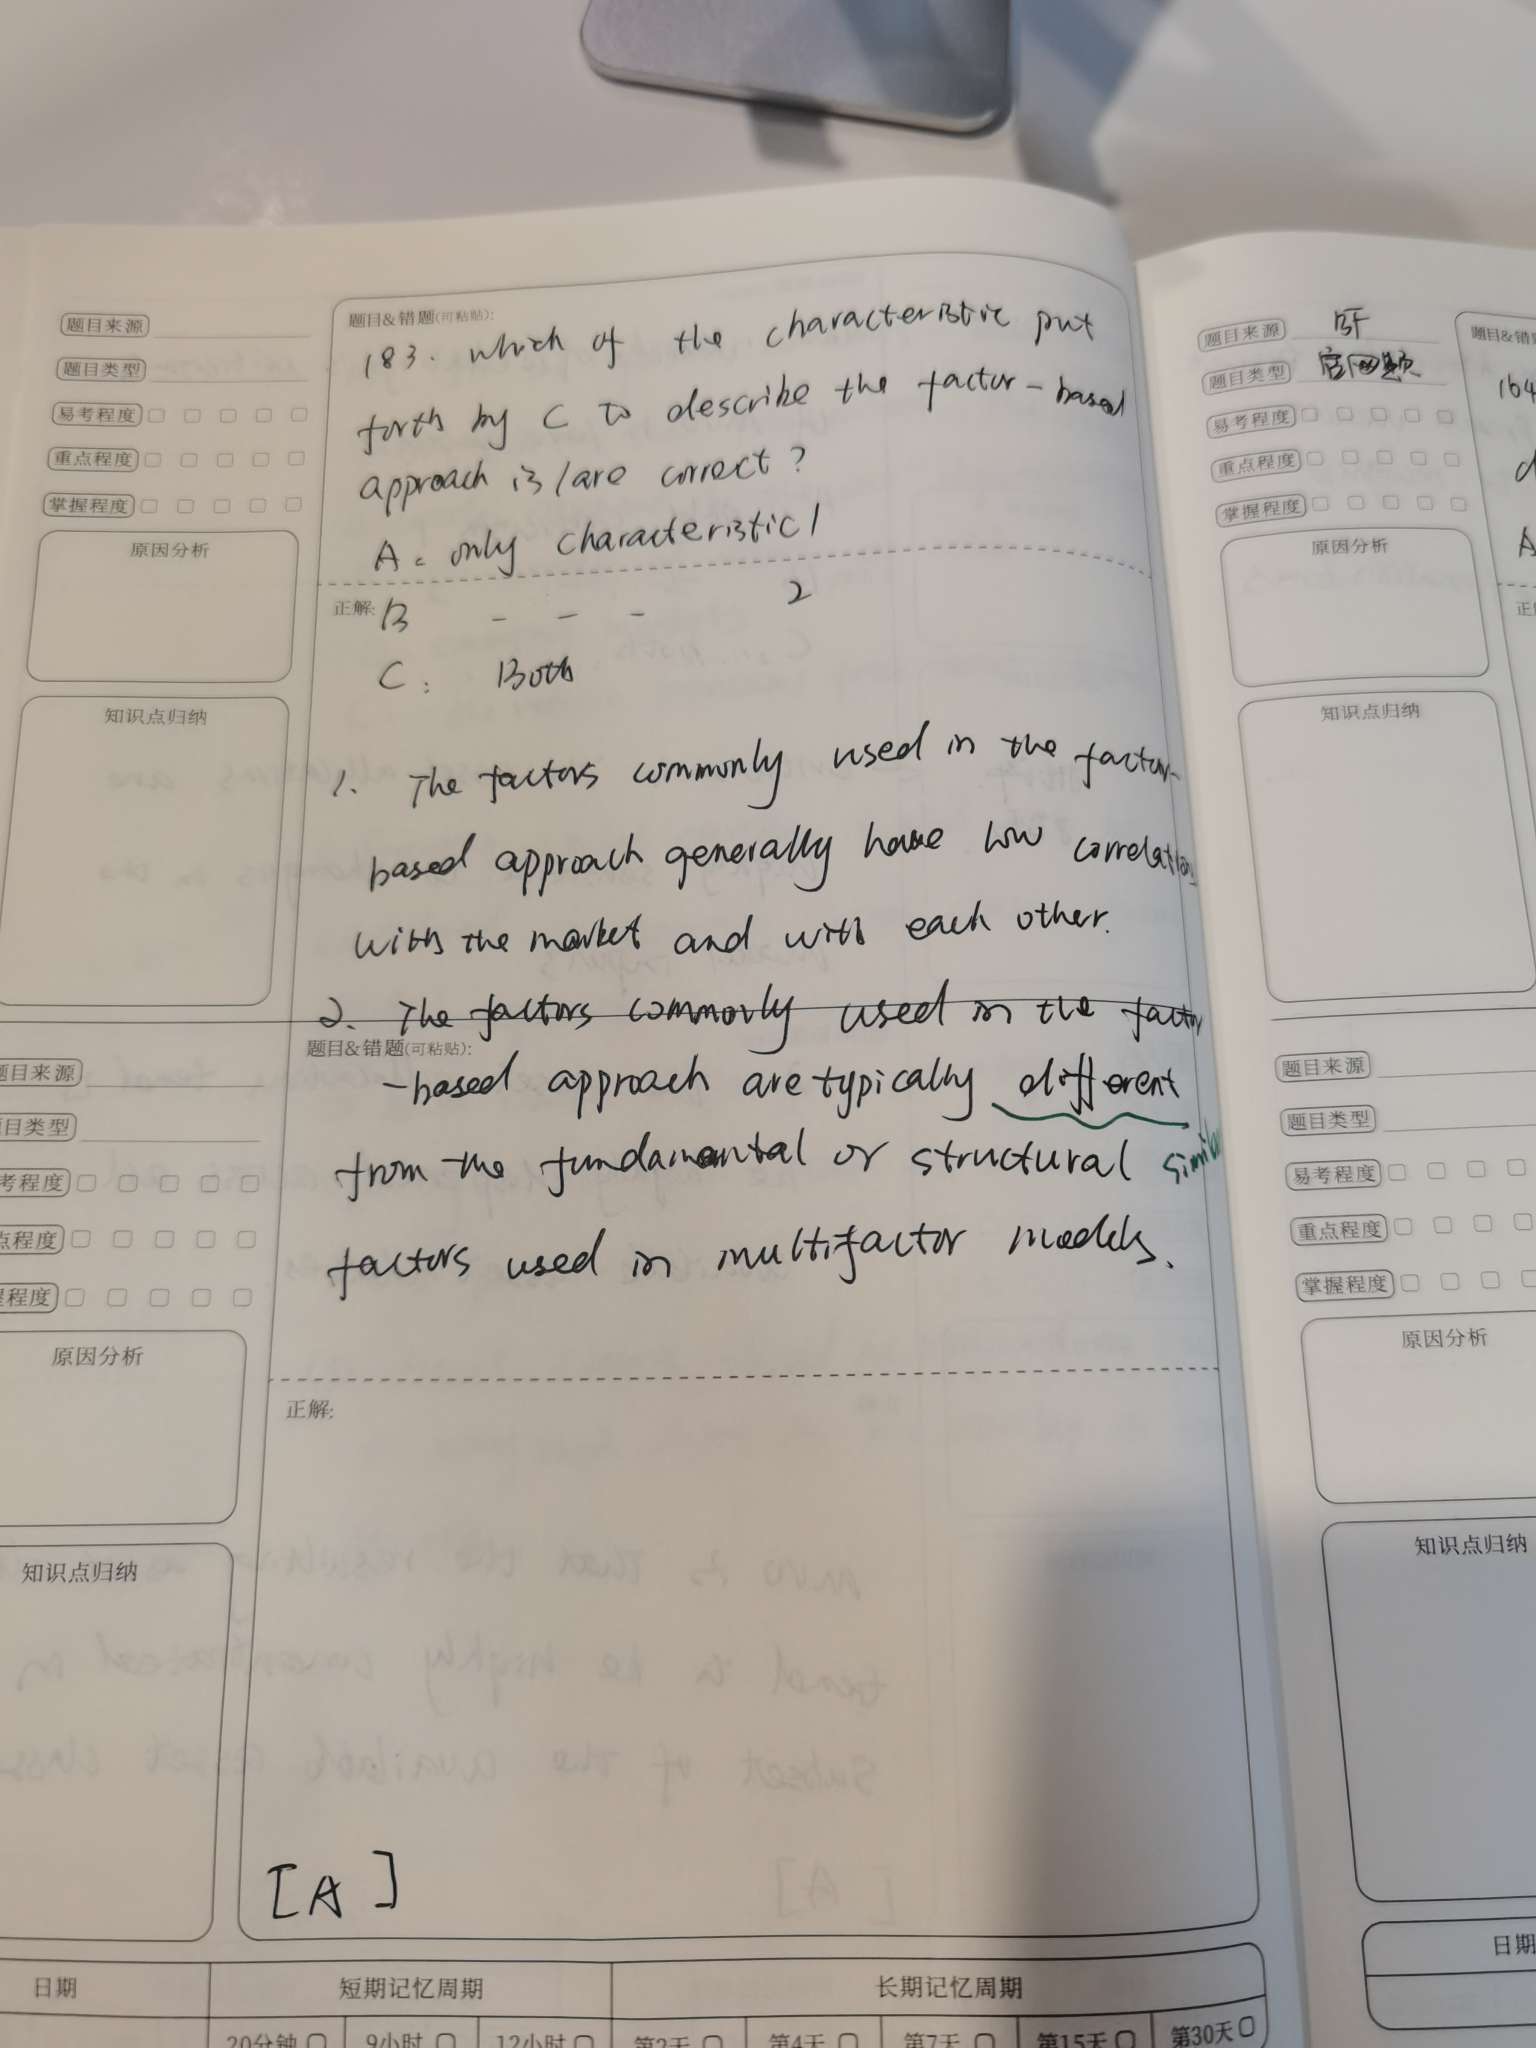 题目来源
题目类型
易考程度
重点程度
掌握程度
原因分析
知识点归纳
题目&错题(可粘贴):
183. which of the characteristic put
forth by C to describe the factor-based
approach is/are correct?
A: only characteristic 1
正解:
B - - - 2
C: Both
1. The factors commonly used in the factor-
based approach generally have low correlation
with the market and with each other.
2. The factors commonly used in the factor
题目&错题(可粘贴):
-based approach are typically different
from the fundamental or structural similar
factors used in multifactor models.
题目来源
题目类型
考程度
点程度
程度
原因分析
知识点归纳
正解:
[A]
日期
短期记忆周期
长期记忆周期
20分钟
9小时
12小时
第2天
第4天
第7天
第15天
第30天
题目来源
题目类型 官网题
易考程度
重点程度
掌握程度
原因分析
知识点归纳
题目&错题
164
A
正
题目来源
题目类型
易考程度
重点程度
掌握程度
原因分析
知识点归纳
日期